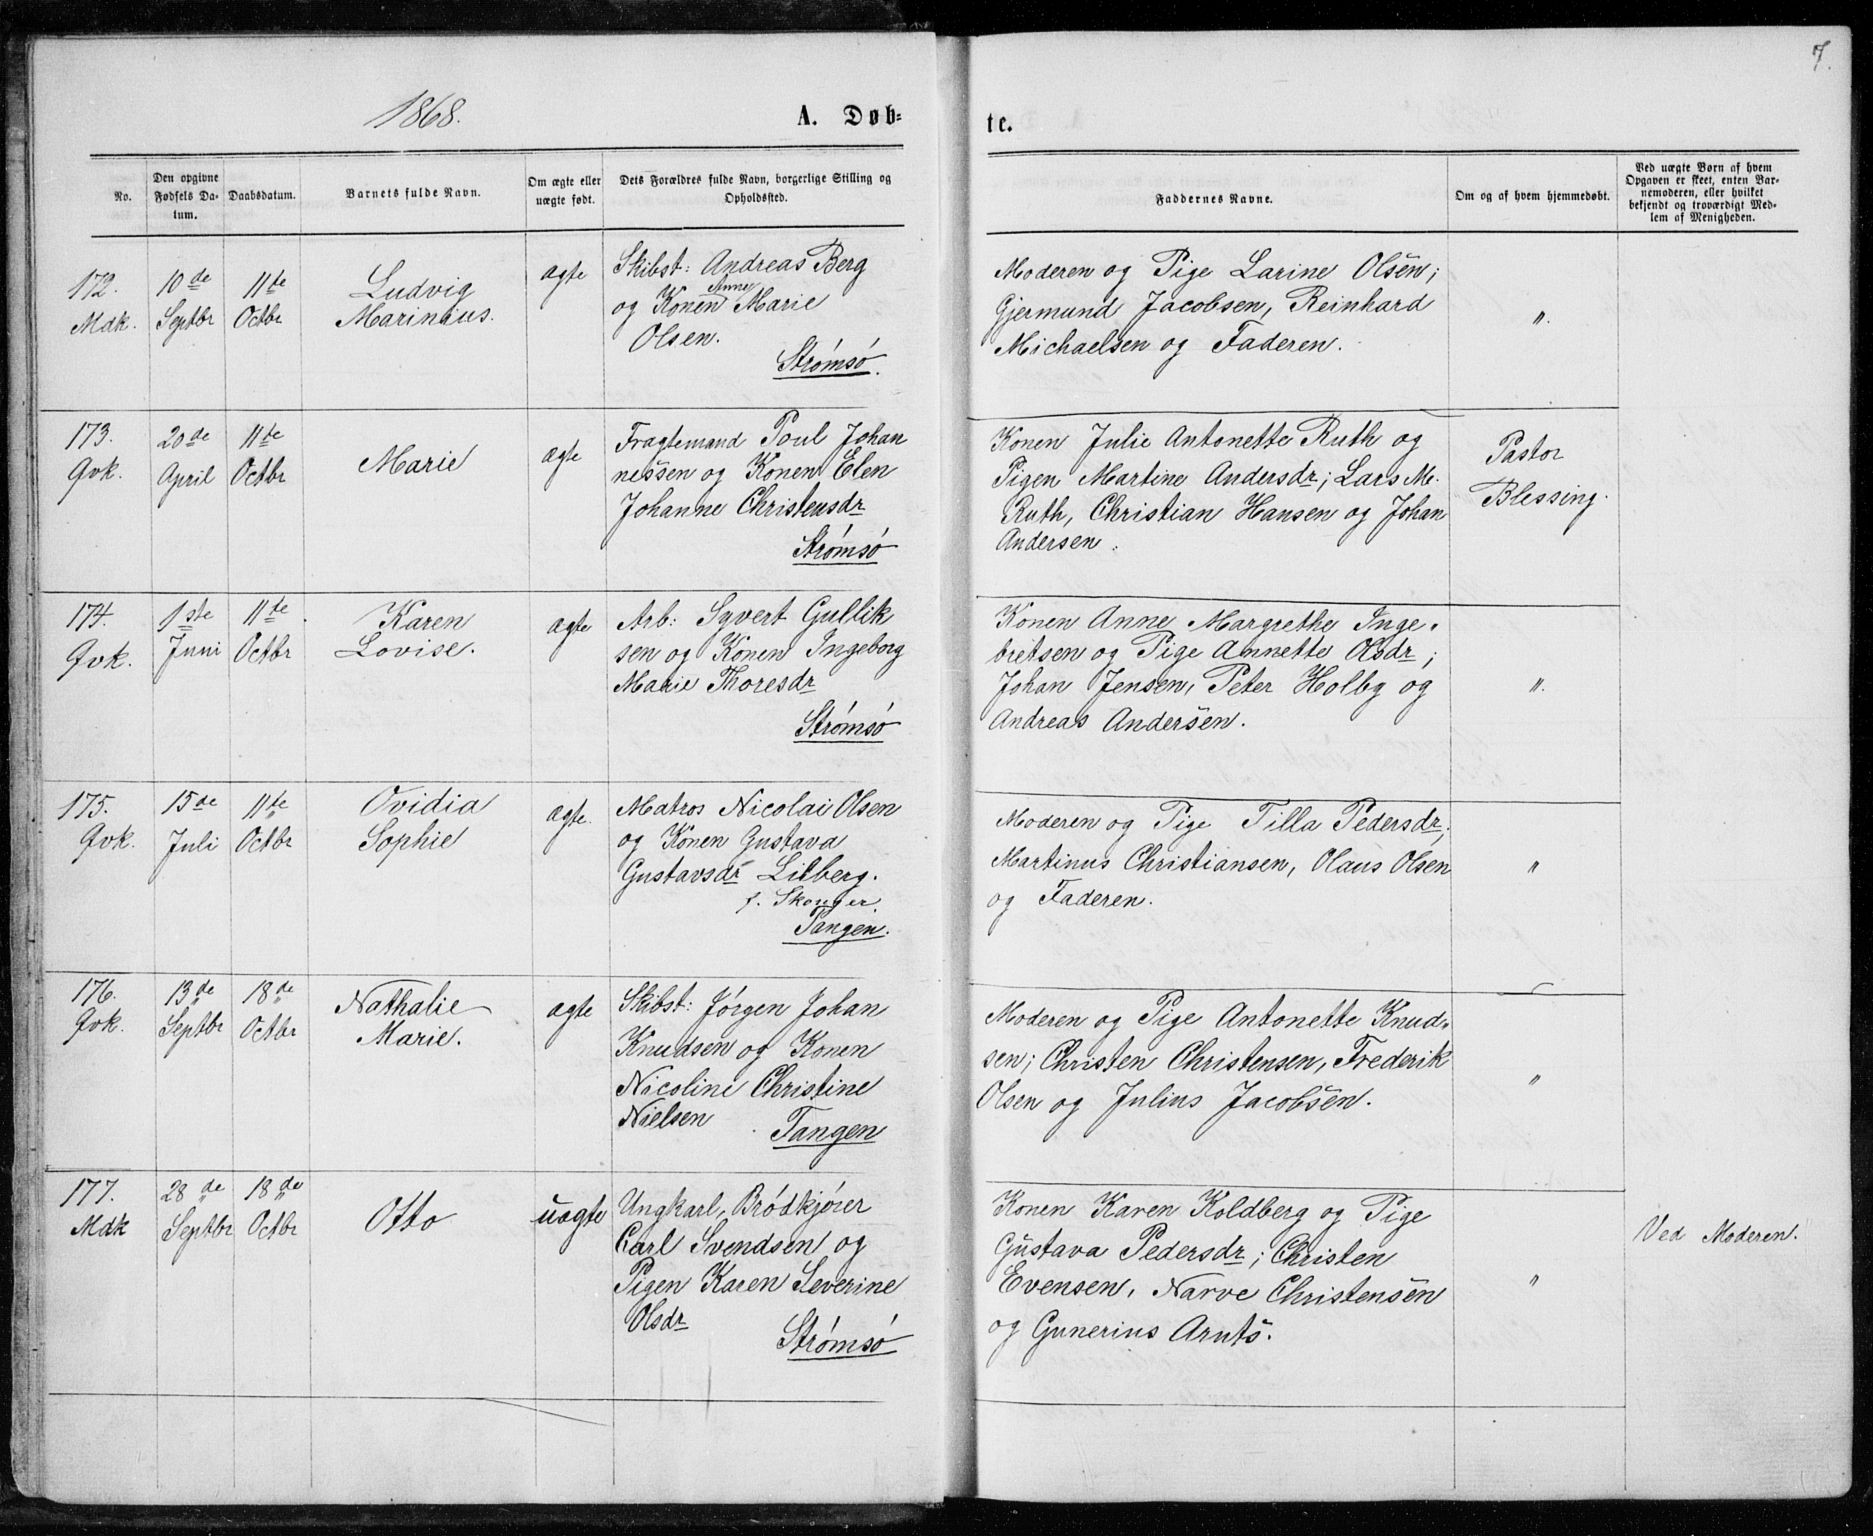 7.
1868.
A. Døb-
te.
No.
Den opgivne
Fødsels Da-
tum.
Daabsdatum.
Barnets fulde Navn.
Om ægte eller
uægte født.
Dets Forældres fulde Navn, borgerlige Stilling og
Opholdssted.
Faddernes Navne.
Om og af hvem hjemmedøbt.
Ved uægte Børn af hvem
Opgaven er skeet, enten Bar-
nemoderen, eller hvilket
bekjendt og troværdigt Med-
lem af Menigheden.
172.
Mdk.
10de
Septbr
11te
Octbr
Ludvig
Marinius.
ægte
Skibst: Andreas Berg
og Konen Anne Marie
Olsen.
Strømsø.
Moderen og Pige Larine Olsen;
Gjermund Jacobsen, Reinhard
Michaelsen og Faderen.
"
173.
Qvk.
20de
April
11te
Octbr
Marie
ægte
Fragtemand Poul Johan
nessen og Konen Elen
Johanne Christensdr
Strømsø
Konen Julie Antonette Ruth og
Pigen Martine Andersdr; Lars M.
Ruth, Christian Hansen og Johan
Andersen.
Pastor
Blessing.
174.
Qvk.
1ste
Juni
11te
Octbr
Karen
Lovise.
ægte
Arb: Syvert Gullik
sen og Konen Ingeborg
Marie Thoresdr
Strømsø
Konen Anne Margrethe Inge-
bretsen og Pige Annette Olsdr;
Johan Jensen, Peter Holby og
Andreas Andersen.
"
175.
Qvk.
15de
Juli
11te
Octbr
Ovidia
Sophie
ægte.
Matros Nicolai Olsen
og Konen Gustava
Gustavsdr Lilberg.
f. Skouger.
Tangen.
Moderen og Pige Tilla Pedersdr;
Martinus Christiansen, Olaus Olsen
og Faderen.
"
176.
Qvk.
13de
Septbr
18de
Octbr
Nathalie
Marie.
ægte
Skibst: Jørgen Johan
Knudsen og Konen
Nicoline Christine
Nielsen
Tangen
Moderen og Pige Antonette Knud-
sen; Christen Christensen, Frederik
Olsen og Julius Jacobsen.
"
177.
Mdk
28de
Septbr
18de
Octbr
Otto
uægte
Ungkarl, Brödkjører
Carl Svendsen og
Pigen Karen Severine
Olsdr
Strømsø
Konen Karen Koldberg og Pige
Gustava Pedersdr; Christen
Evensen, Narve Christensen
og Gunerius Arnts.
"
Ved Moderen.